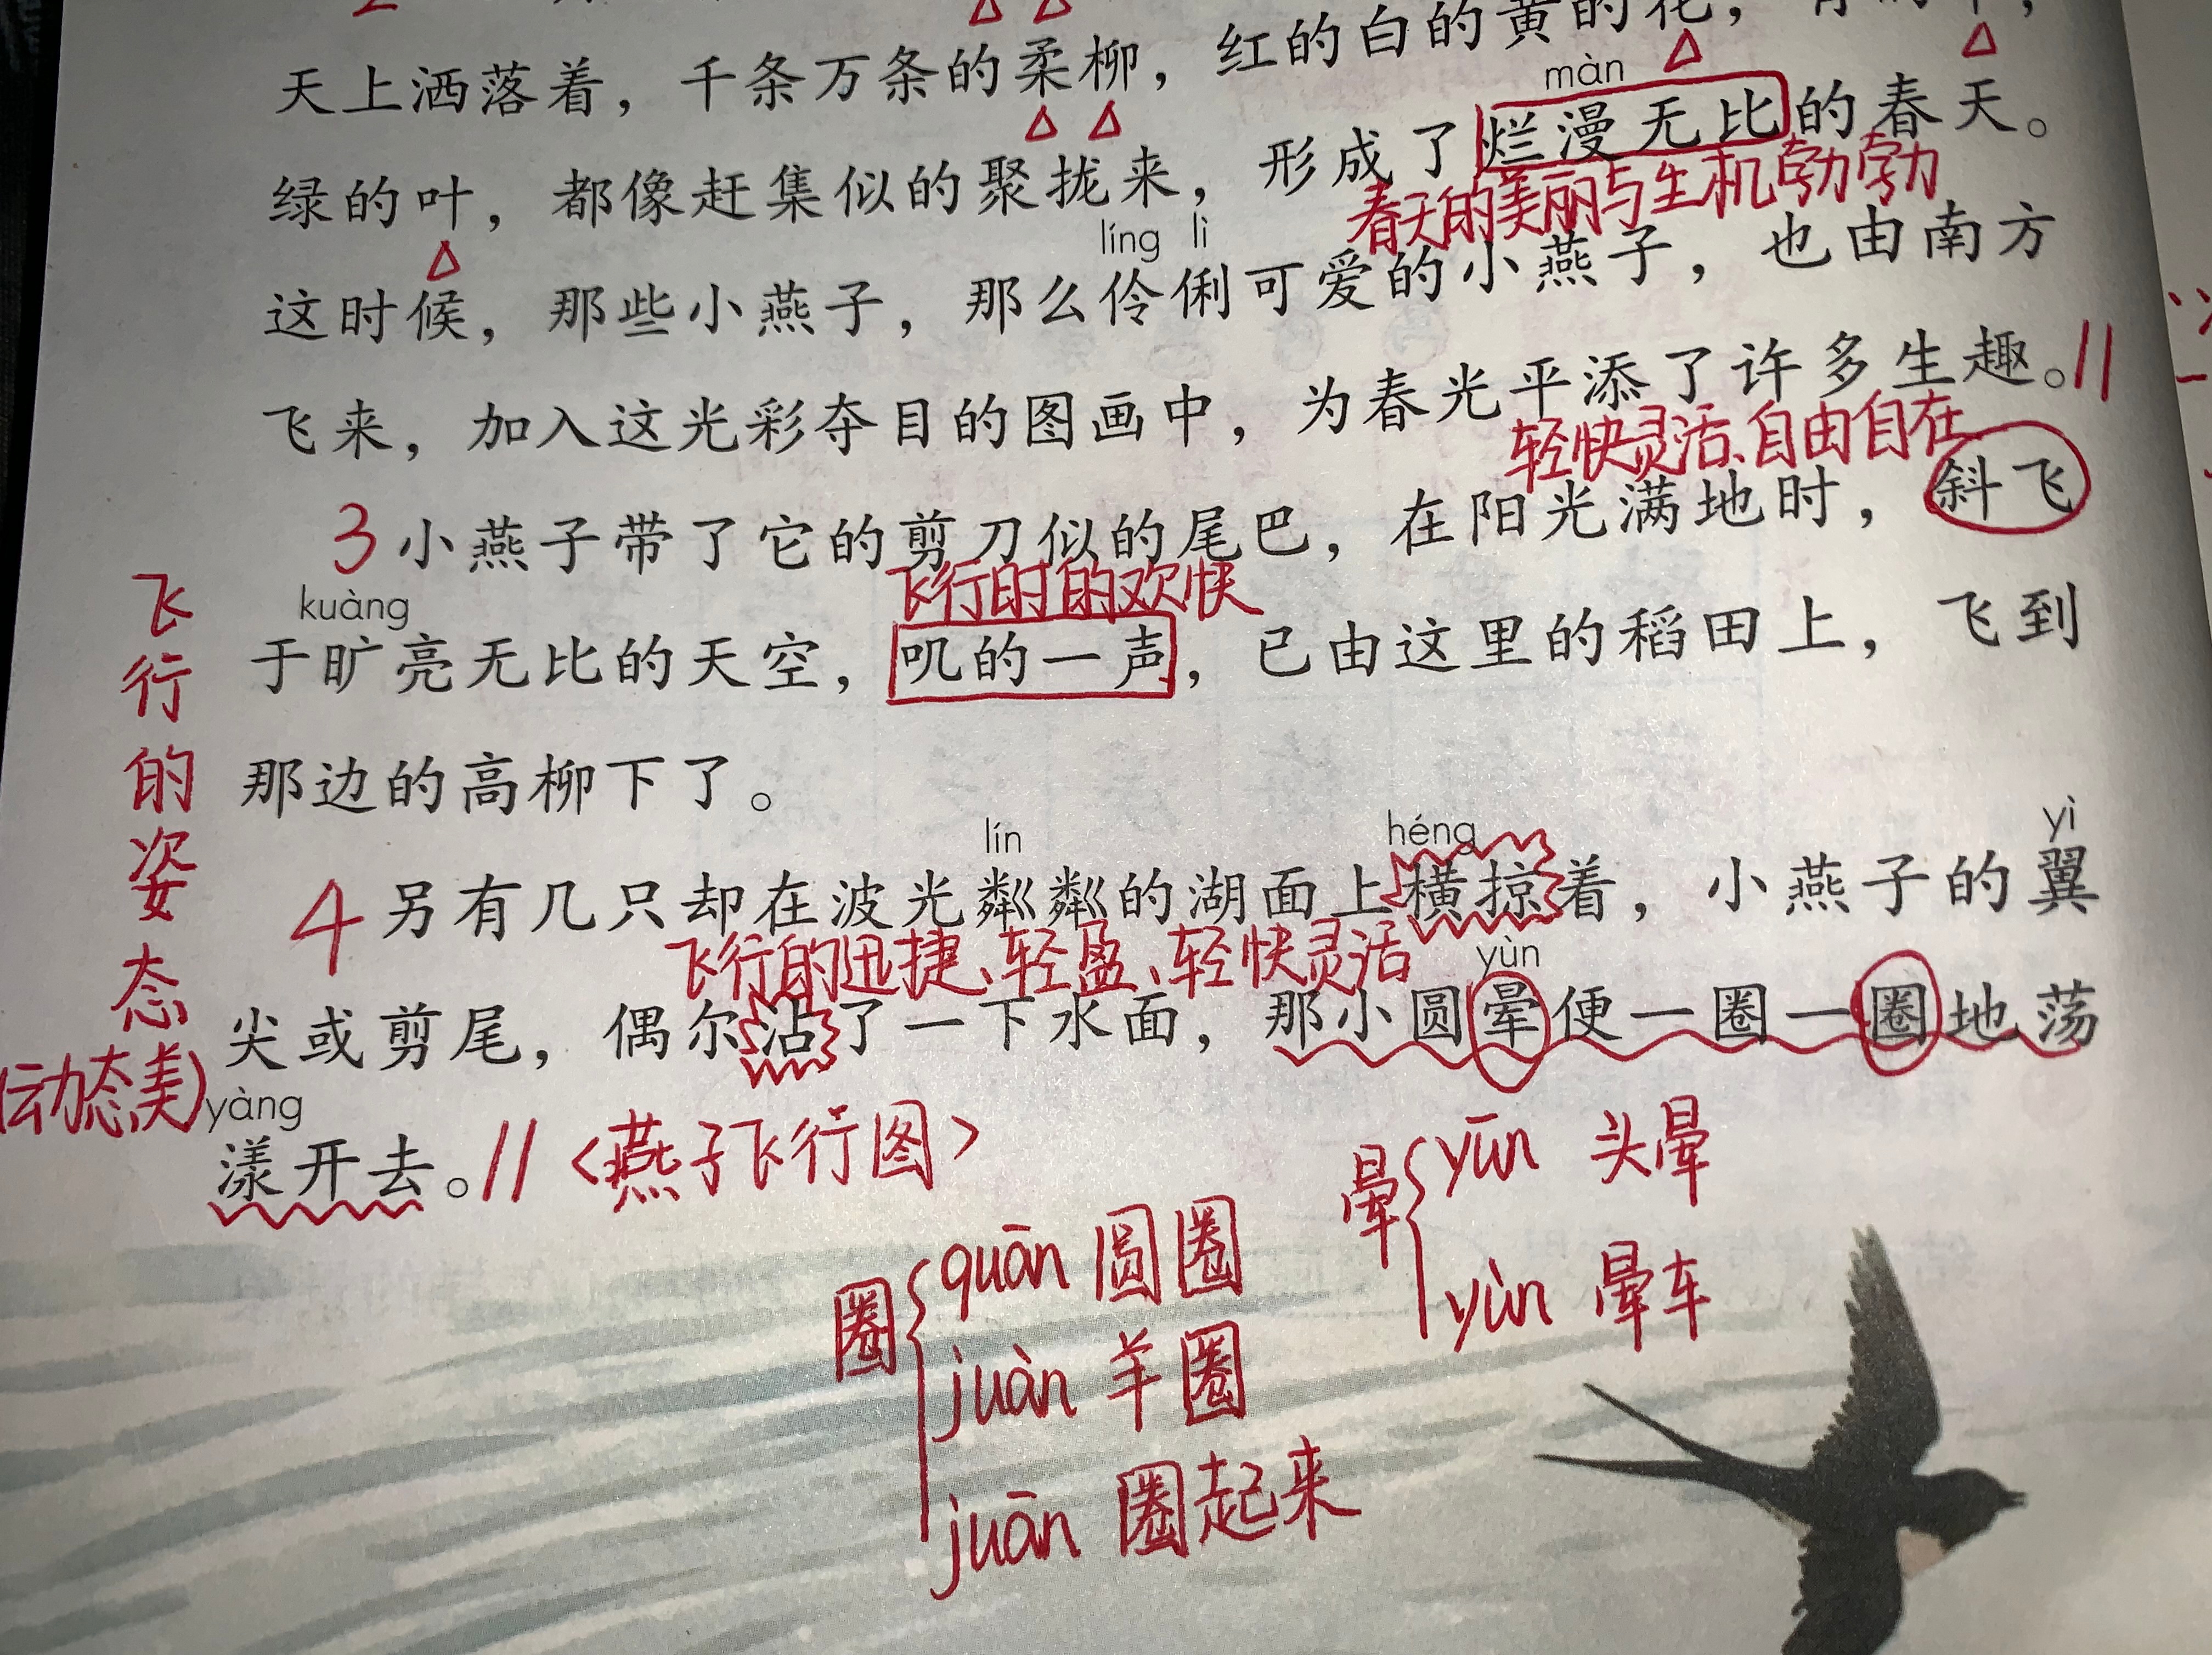 天上洒落着，千条万条的柔柳，红的白的黄的花，
màn
绿的叶，都像赶集似的聚拢来，形成了烂漫无比的春天。
春天的美丽与生机勃勃
líng lì
这时候，那些小燕子，那么伶俐可爱的小燕子，也由南方
飞来，加入这光彩夺目的图画中，为春光平添了许多生趣。
轻快灵活、自由自在
3 小燕子带了它的剪刀似的尾巴，在阳光满地时，斜飞
飞行时的欢快
kuàng
于旷亮无比的天空，叽的一声，已由这里的稻田上，飞到
那边的高柳下了。
飞行的姿态
(动态美)
lín héng yì
4 另有几只却在波光粼粼的湖面上横掠着，小燕子的翼
飞行的迅捷、轻盈、轻快灵活
yùn
尖或剪尾，偶尔沾了一下水面，那小圆晕便一圈一圈地荡
yàng
漾开去。 <燕子飞行图>
晕 yūn 头晕
yùn 晕车
圈 quān 圆圈
juàn 羊圈
juān 圈起来